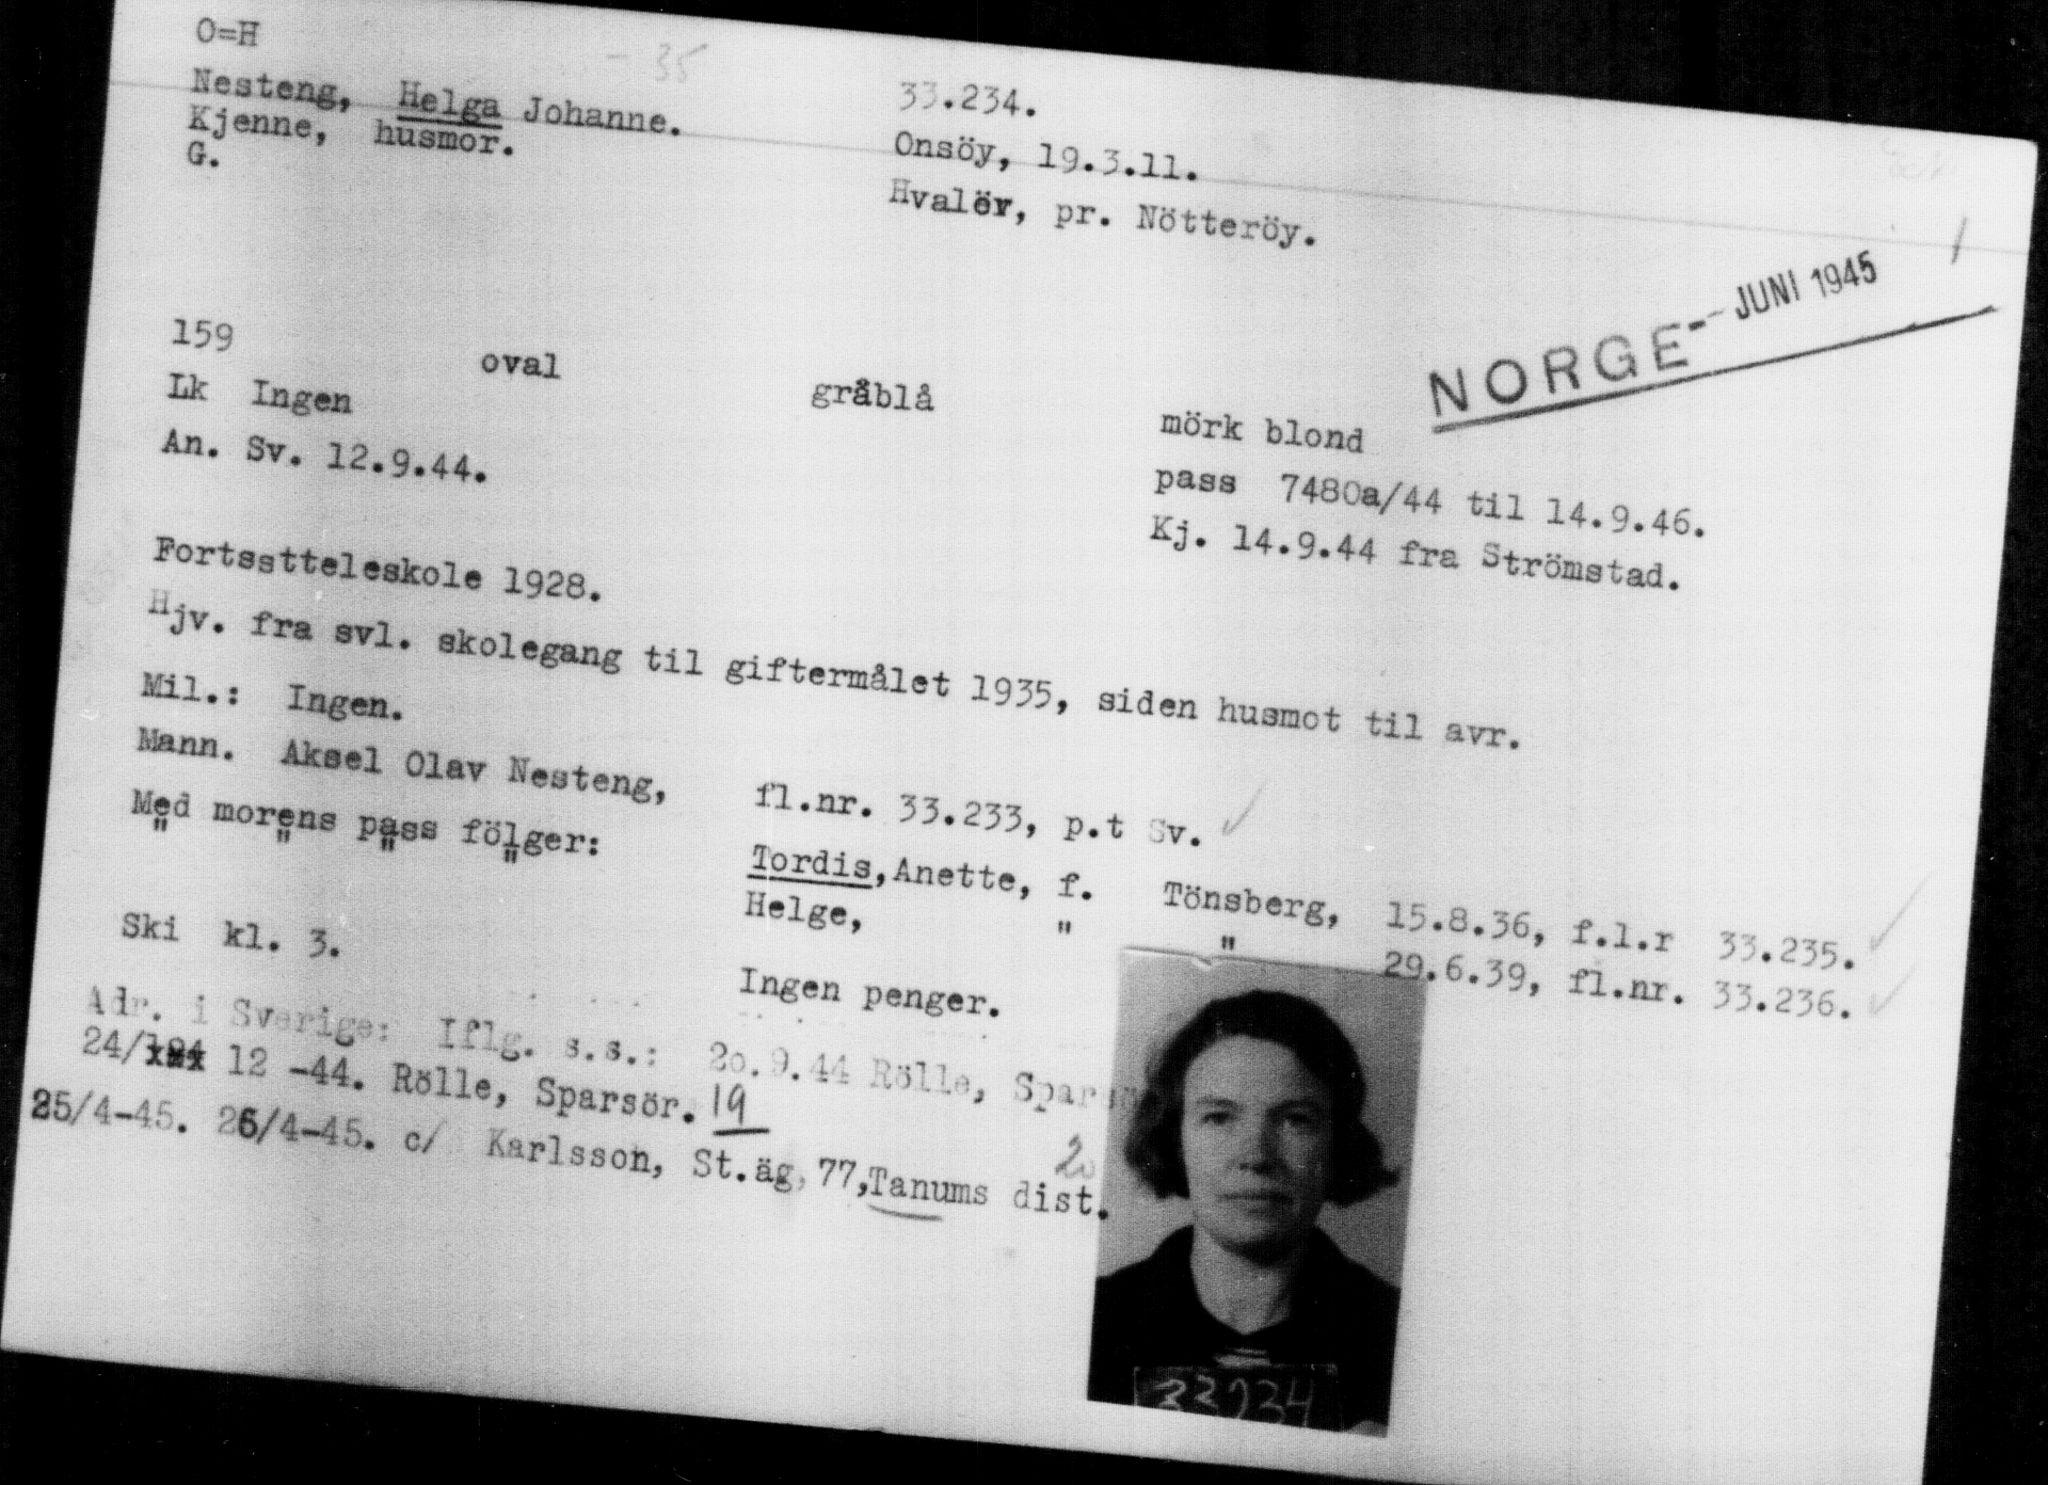 O=H
- 35
33.234.
Nesteng, Helga Johanne.
Onsöy, 19.3.11.
Kjenne, husmor.
Hvalör, pr. Nötteröy.
G.
NORGE - JUNI 1945
159 oval gråblå mörk blond
Lk Ingen pass 7480a/44 til 14.9.46.
An. Sv. 12.9.44. Kj. 14.9.44 fra Strömstad.
Fortsstteleskole 1928.
Hjv. fra svl. skolegang til giftermålet 1935, siden husmot til avr.
Mil.: Ingen.
Mann. Aksel Olav Nesteng, fl.nr. 33.233, p.t Sv.
Med morens pass fölger: Tordis,Anette, f. Tönsberg, 15.8.36, f.l.r 33.235.
" " " " Helge, " " 29.6.39, fl.nr. 33.236.
Ski kl. 3. Ingen penger.
Adr. i Sverige: Iflg. s.s.: 2o.9.44 Rölle,
24/ 12 -44. Rölle, Sparsör. 19
25/4-45. 26/4-45. c/ Karlsson, St.äg, 77,Tanums dist.
20
33234